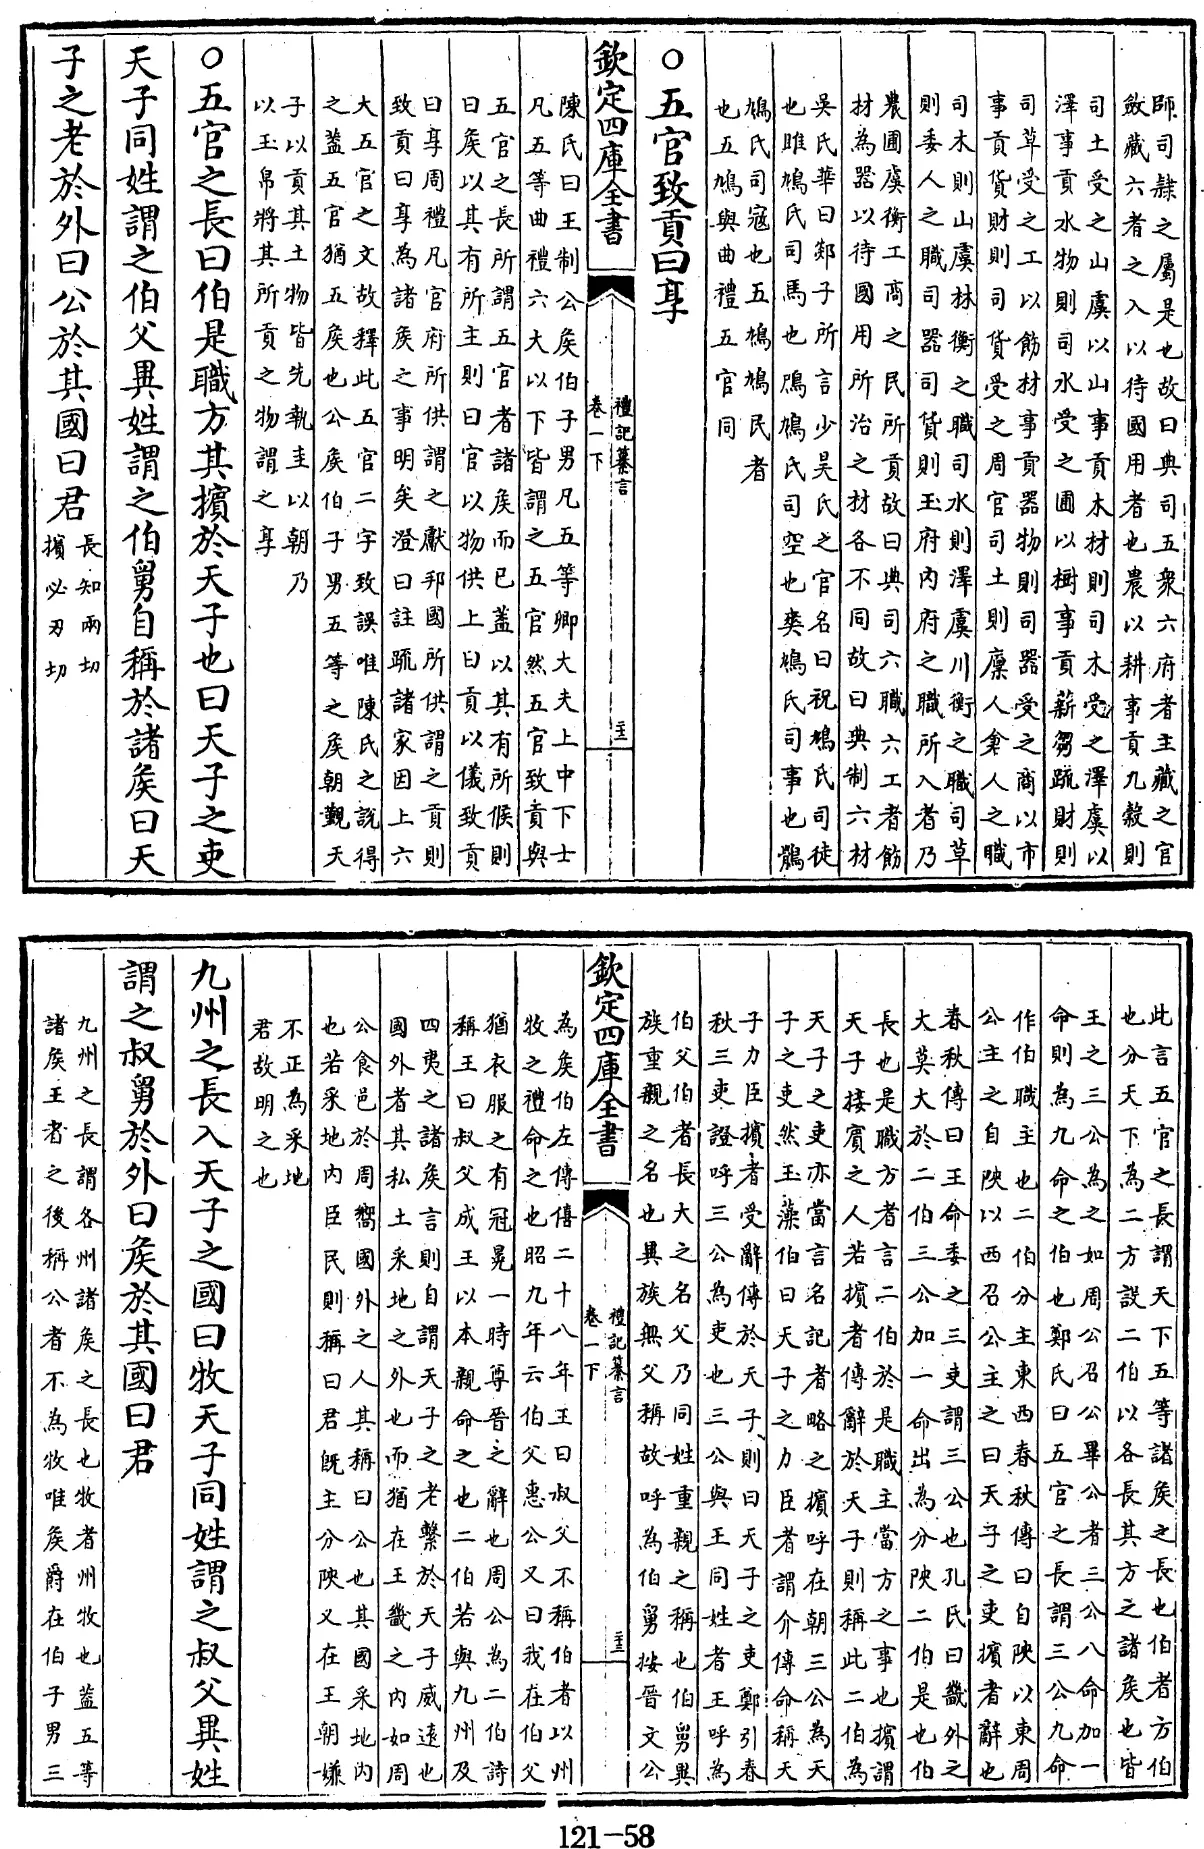 師司隸之屬是也故曰典司五衆六府者主藏之官
斂藏六者之入以待國用者也農以耕事貢九穀則
司土受之山虞以山事貢木材則司木受之澤虞以
澤事貢水物則司水受之圃以樹事貢薪芻疏財則
司草受之工以飭材事貢器物則司器受之商以市
事貢貨財則司貨受之周官司土則廩人倉人之職
司木則山虞林衡之職司水則澤虞川衡之職司草
則委人之職司器司貨則玉府内府之職所入者乃
農圃虞衡工商之民所貢故曰典司六職六工者飭
材為器以待國用所治之材各不同故曰典制六材
吳氏華曰郯子所言少昊氏之官名曰祝鳩氏司徒
也雎鳩氏司馬也鳲鳩氏司空也爽鳩氏司事也鶻
鳩氏司寇也五鳩鳩民者
也五鳩與曲禮五官同
○五官致貢曰享
欽定四庫全書
禮記纂言
卷一下
陳氏曰王制公矦伯子男凡五等卿大夫上中下士
凡五等曲禮六大以下皆謂之五官然五官致貢與
五官之長所謂五官者諸矦而已蓋以其有所候則
曰矦以其有所主則曰官以物供上曰貢以儀致貢
曰享周禮凡官府所供謂之獻邦國所供謂之貢則
致貢曰享為諸矦之事明矣澄曰註疏諸家因上六
大五官之文故釋此五官二字致誤唯陳氏之説得
之蓋五官猶五矦也公矦伯子男五等之矦朝覲天
子以貢其土物皆先執圭以朝乃
以玉帛將其所貢之物謂之享
○五官之長曰伯是職方其擯於天子也曰天子之吏
天子同姓謂之伯父異姓謂之伯舅自稱於諸矦曰天
子之老於外曰公於其國曰君
長知兩切
擯必刃切
此言五官之長謂天下五等諸矦之長也伯者方伯
也分天下為二方設二伯以各長其方之諸矦也皆
王之三公為之如周公召公畢公者三公八命加一
命則為九命之伯也鄭氏曰五官之長謂三公九命
作伯職主也二伯分主東西春秋傳曰自陝以東周
公主之自陝以西召公主之曰天子之吏擯者辭也
春秋傳曰王命委之三吏謂三公也孔氏曰畿外之
大莫大於二伯三公加一命出為分陝二伯是也伯
長也是職方者言二伯於是職主當方之事也擯謂
天子接賓之人若擯者傳辭於天子則稱此二伯為
天子之吏亦當言名記者略之擯呼在朝三公為天
子之吏然玉藻伯曰天子之力臣者謂介傳命稱天
子力臣擯者受辭傳於天子則曰天子之吏鄭引春
秋三吏證呼三公為吏也三公與王同姓者王呼為
伯父伯者長大之名父乃同姓重親之稱也伯舅異
族重親之名也異族無父稱故呼為伯舅按晉文公
欽定四庫全書
禮記纂言
卷一下
為矦伯左傳僖二十八年王曰叔父不稱伯者以州
牧之禮命之也昭九年云伯父惠公又曰我在伯父
猶衣服之有冠冕一時尊晉之辭也周公為二伯詩
稱王曰叔父成王以本親命之也二伯若與九州及
四夷之諸矦言則自謂天子之老繫於天子威遠也
國外者其私土采地之外也而猶在王畿之内如周
公食邑於周嚮國外之人其稱曰公也其國采地内
也若采地内臣民則稱曰君既主分陝又在王朝嫌
不正為采地
君故明之也
九州之長入天子之國曰牧天子同姓謂之叔父異姓
謂之叔舅於外曰矦於其國曰君
九州之長謂各州諸矦之長也牧者州牧也蓋五等
諸矦王者之後稱公者不為牧唯矦爵在伯子男三
121-58